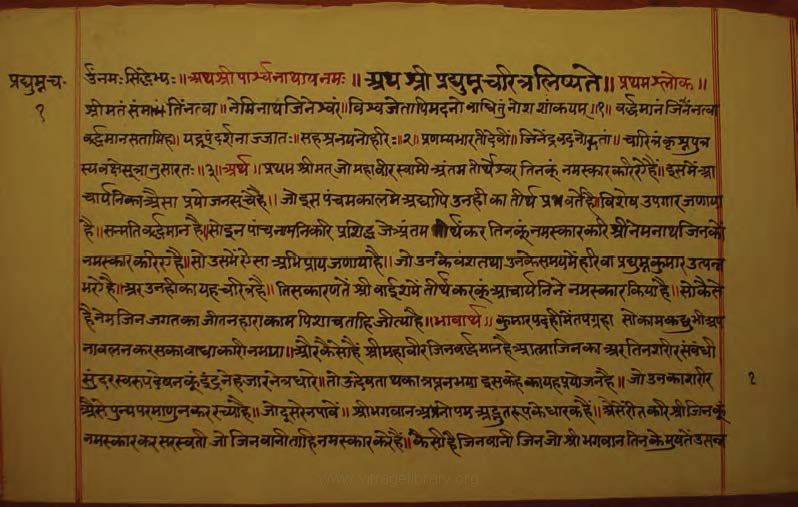 प्रद्युम्नच॰
१
उंनमः सिद्धेभ्यः॥ अथ श्री पार्श्वनाथाय नमः॥ अथ श्री प्रद्युम्न चरित्र लिष्यते॥ प्रथम श्लोक॥
श्रीमतं सन्मतिं नत्वा॥ नेमिनाथ जिनेश्वरं॥ विश्व जेतापि मदनो बाधितुं नो शशांकयम्॥१॥ वर्द्धमानं जिनं नत्वा
वर्द्धमान सतामिह॥ यद्रूपं दर्शनाज्जातः॥ सहश्र नयनो हरिः॥२॥ प्रणम्य भारतीं देवीं॥ जिनेंद्र वदनोद्गतां॥ चारित्रं कृष्ण पुत्र
स्य वक्षे सूत्रानुसारतः॥३॥ अर्थ॥ प्रथम श्रीमत् जो महावीर स्वामी अंतम तीर्थेश्वर तिनकूं नमस्कार करिऐ हैं॥ इसमें आ
चार्यनिका अैसा प्रयोजन सूचै है॥ जो इस पंचम काल मे अद्यापि उनही का तीर्थ प्रवर्तै है॥ विशेष उपगार जणाया
है॥ सन्मति वर्द्धमान है॥ सो इन पांच नामनि करि प्रशिद्ध जे अंतम तीर्थंकर तिनकूं नमस्कार करि श्री नेमनाथ जिन कों
नमस्कार करिए है॥ सो उसमें ऐसा अभिप्राय जणाया है॥ जो उनके वंश तथा उनके समय में हरि वा प्रद्युम्न कुमार उत्पन्न
भऐ है॥ अर उनही का यह चरित्र है॥ तिस कारणतें श्री बाईशमें तीर्थंकर कूं आचार्यनिने नमस्कार किया है॥ सो कैसे
है नेम जिन जगत का जीतनहारा काम पिशाच ताहि जीत्या है॥ भावार्थ॥ कुमार पद ही में तप ग्रहा सो काम कछु भी अप
ना बल न कर सका बाधाकारी न भया॥ और कैसे हैं श्री महावीर जिन वर्द्धमान है आत्मा जिनका अर तिन शरीर संबंधी
सुंदर स्वरुप देषन कूं इंद्र ने हजार नेत्र धारे॥ तो ऊ देषता थका त्रप्त न भया इस कहे का यह प्रयोजन है॥ जो उनका शरीर
अैसे पुन्य परमाणुन कर रच्यो है॥ जो दूसरे न पावें॥ श्री भगवान अनोपम अद्भुत रूप के धारक हैं॥ अैसें रीत करि श्री जिन कूं
नमस्कार कर सरस्वती जो जिनवानी ताहि नमस्कार करे हैं॥ कैसी है जिनवानी जिन जो श्री भगवान तिनके मुषतें उत्पन्न
१
www.vitragelibrary.org